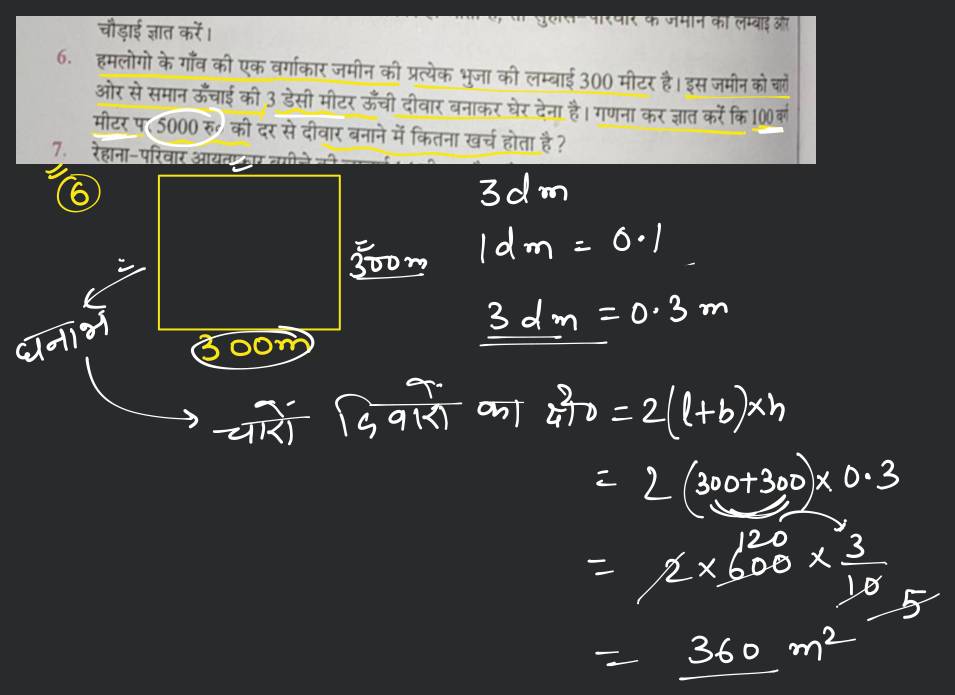 चौड़ाई ज्ञात करें।
6. हमलोगो के गाँव की एक वर्गाकार जमीन की प्रत्येक भुजा की लम्बाई 300 मीटर है। इस जमीन को चारों
ओर से समान ऊँचाई की 3 डेसी मीटर ऊँची दीवार बनाकर घेर देना है। गणना कर ज्ञात करें कि 100 वर्ग
मीटर पर 5000 रु० की दर से दीवार बनाने में कितना खर्च होता है?
7. रेहाना-परिवार
6
3dm
300m
1dm = 0.1
3 dm = 0.3 m
300m
घनाभ
चारों दिवारों का क्षे० = 2(l+b)×h
= 2 (300+300) × 0.3
120
= 2 × 600 × 3/10
5
= 360 m²